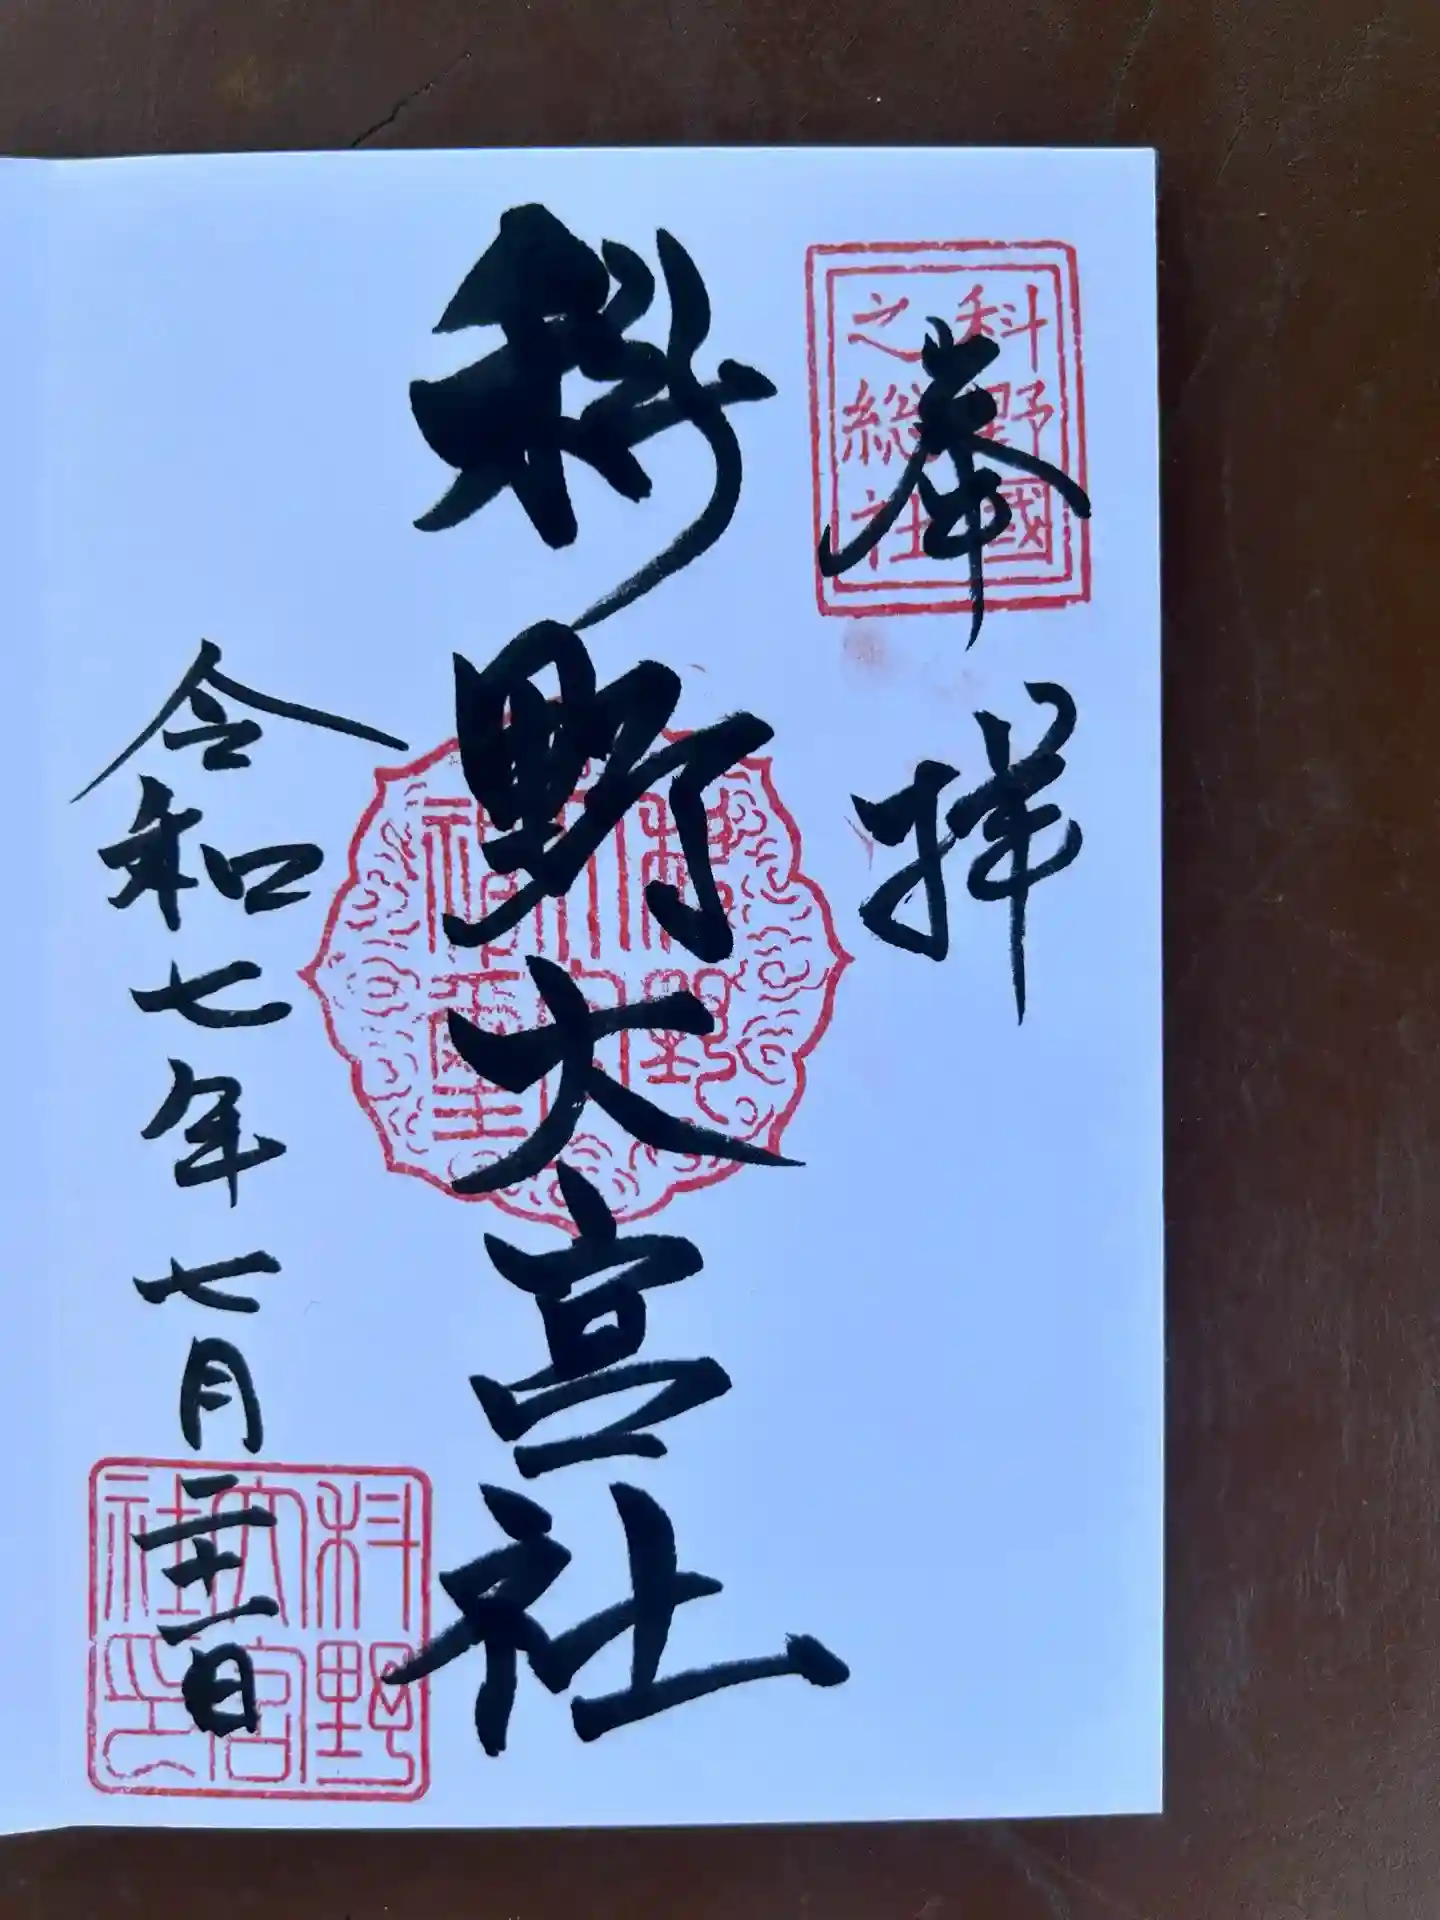 奉拝
科野國
之総社
科野大宮社
令和七年七月二十一日
科野
大宮
社印